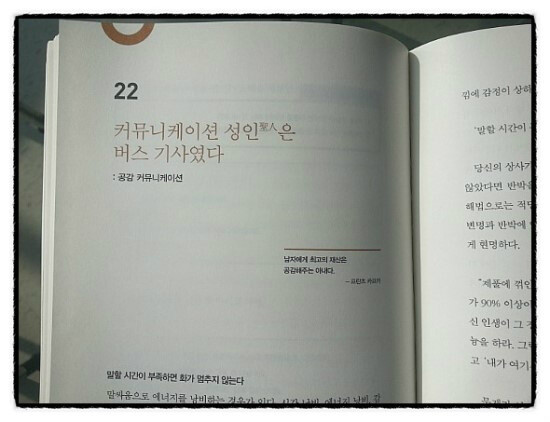 22
커뮤니케이션 성인聖人은
버스 기사였다
: 공감 커뮤니케이션
남자에게 최고의 재산은
공감해주는 아내다.
말할 시간이 부족하면 화가 멈추지 않는다
말싸움으로 에너지를 낭비하는 경우가 있다. 시간 낭비, 에너지 낭비, 감
낌에 감정이 상하
'말할 시간이
당신의 상사가
않았다면 반박을
해법으로는 적당
변명과 반박에
게 현명하다.
"제품에 꺾인
가 90% 이상이
신 인생이 그
늠을 하라. 그
고 '내가 여기